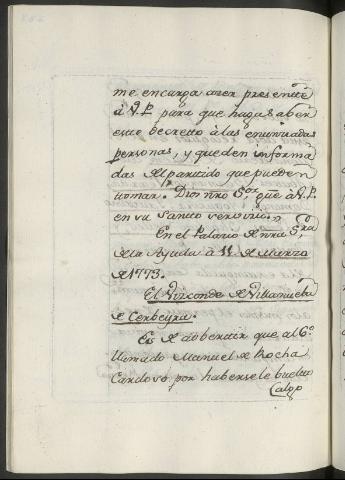 me encarga azer presente
à V.P. para que haga saber
este decretto à las enunciadas
personas, y queden informa
das del partido que pueden
tomar. Dios ntro Sor. gue à V.P.
en su Santo servicio.
En el Palacio de nra Sra
de la Ayuda à 11 de Marzo
de 1773.
El Vizconde de Villanueba
de Cerbeyra.
Es de advertir que al
llamado Manuel de Rocha
Cardoso por haversele buelto
algo